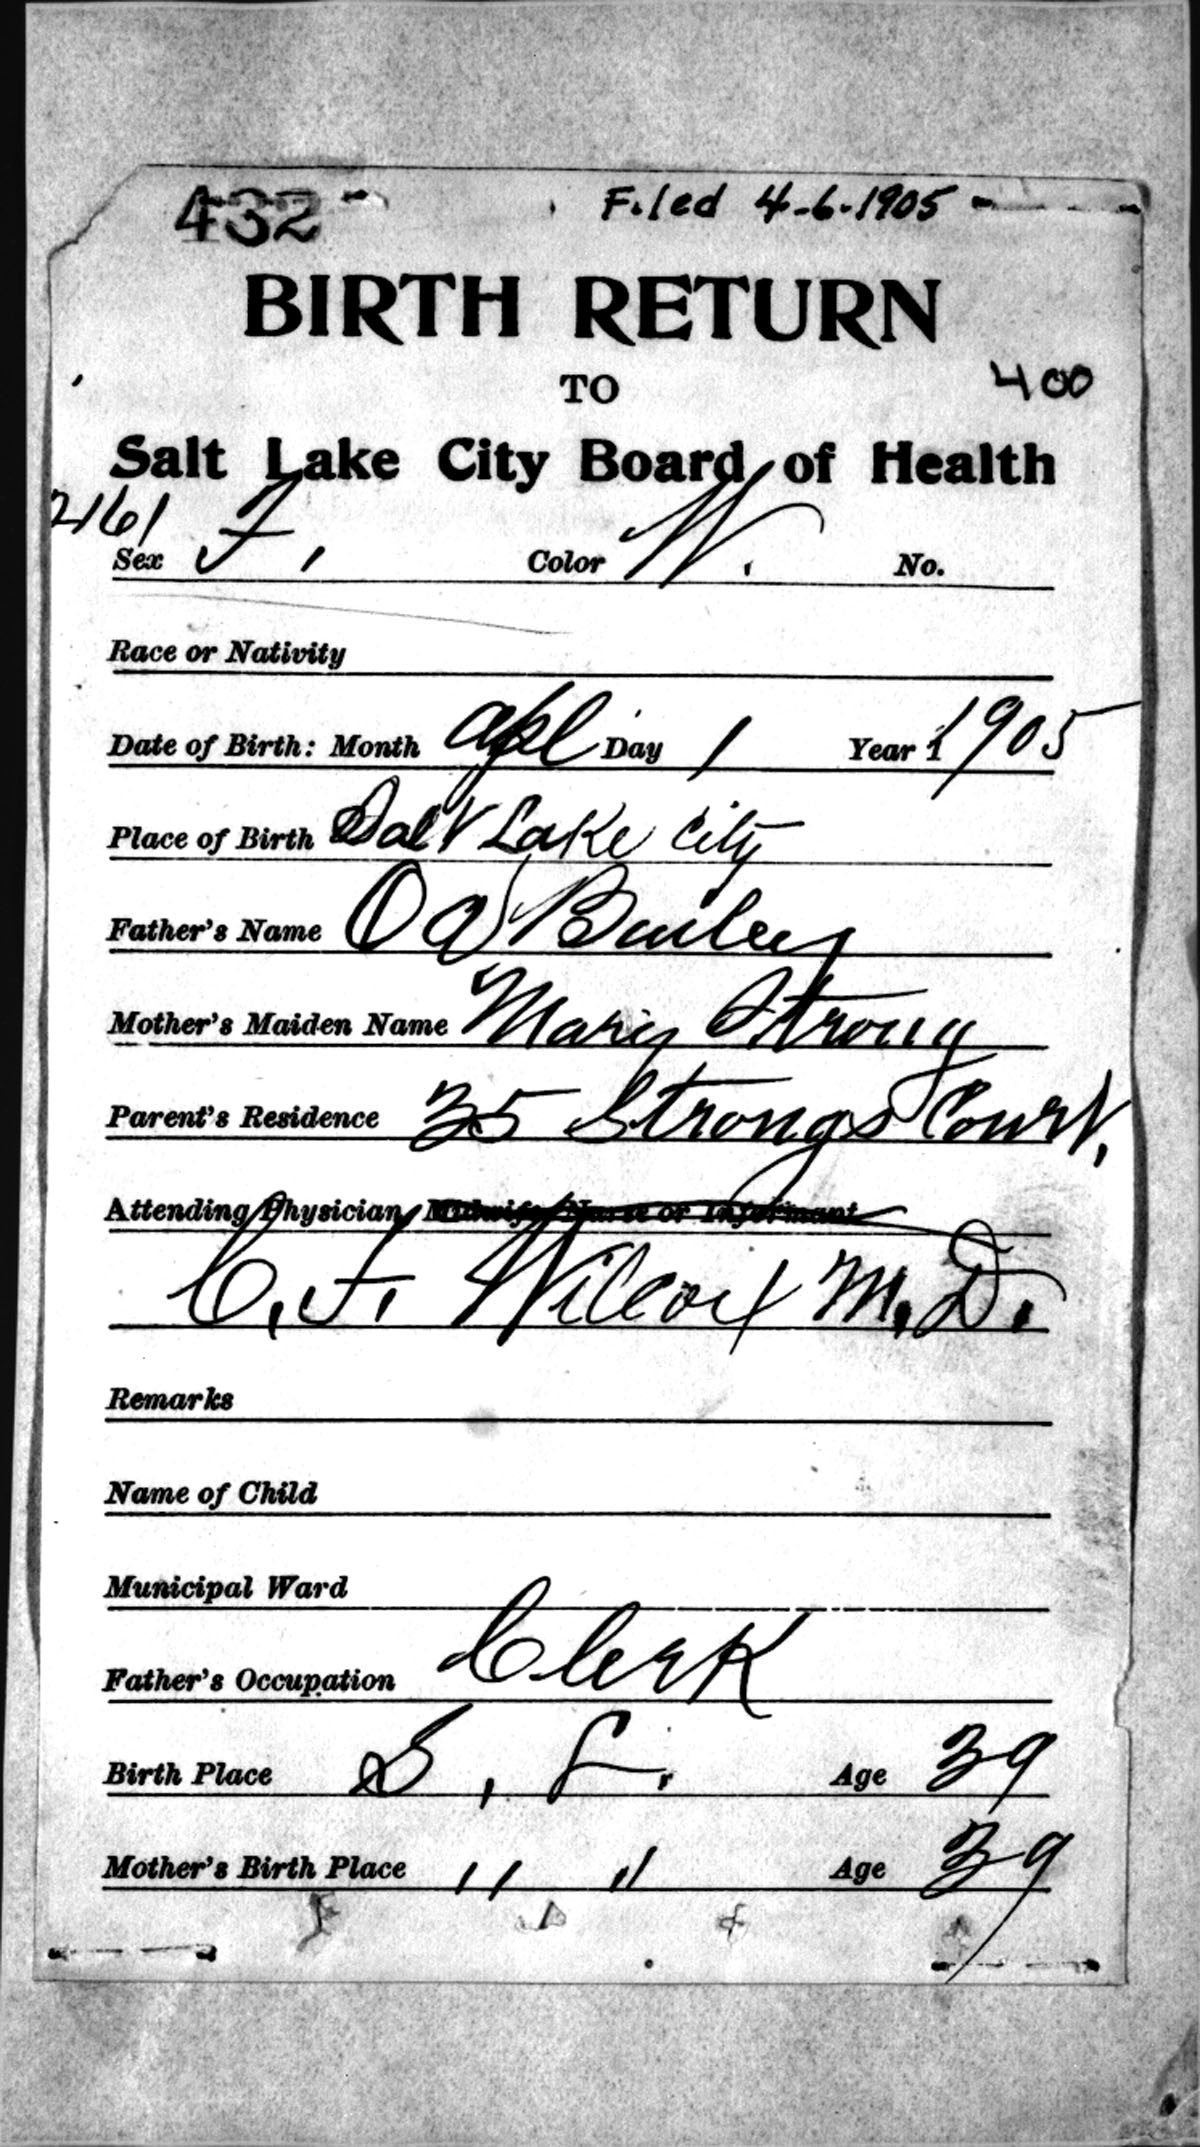 432 Filed 4-6-1905
BIRTH RETURN
TO
400
Salt Lake City Board of Health
2161
Sex F. Color W. No.
Race or Nativity
Date of Birth: Month Apl Day 1 Year 1 1905
Place of Birth Salt Lake City
Father's Name O A Bailey
Mother's Maiden Name Mary Strong
Parent's Residence 35 Strongs Court.
Attending Physician, Midwife, Nurse or Informant
C. F. Wilcox M.D.
Remarks
Name of Child
Municipal Ward
Father's Occupation Clerk
Birth Place S. L. Age 39
Mother's Birth Place " " Age 39